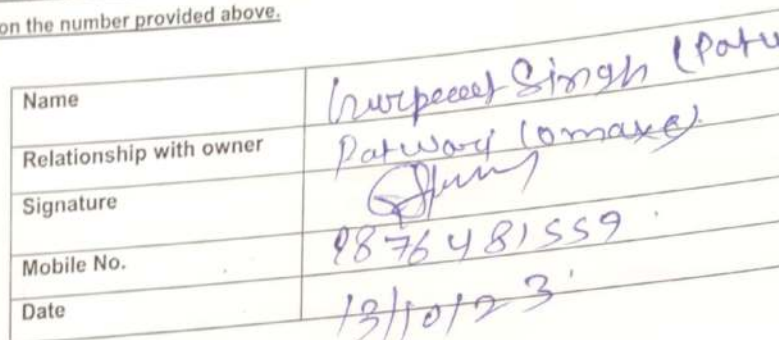 on the number provided above.
Name Gurpreet Singh (Patw
Relationship with owner Patwari (omaxe)
Signature
Mobile No. 9876481559
Date 13/10/23